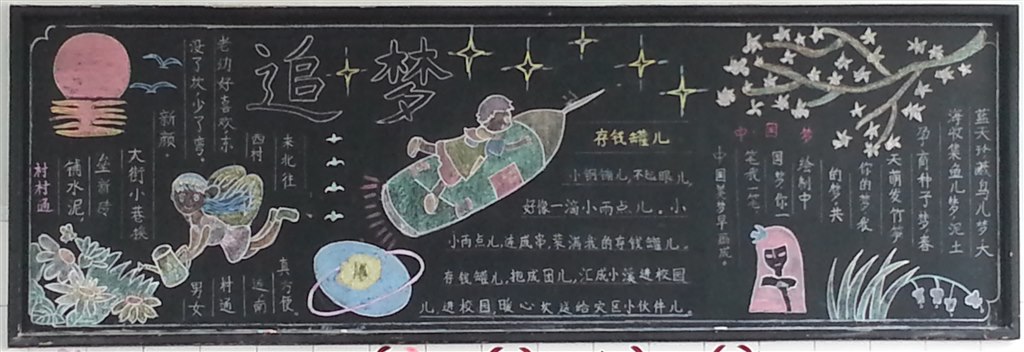 追梦
村村通
大街小巷换
新颜。
没了坎少了弯。
老幼好喜欢东
西村
来北往
真方便
远南
村通
男女
铺水泥,
垒新砖
存钱罐儿
小钢镚儿,不起眼儿,
好像一滴小雨点儿。小
小雨点儿,连成串,装满我的存钱罐儿。
存钱罐儿,抱成团儿,汇成小溪进校园
儿,进校园,暖心灾送给灾区小伙伴儿。
中国梦
蓝天珍藏鸟儿梦大
海收集鱼儿梦泥土
孕育种子梦春
天萌发竹笋
你的梦我
的梦共
绘制中
国梦你一
笔我一笔
中国梦梦早画成。